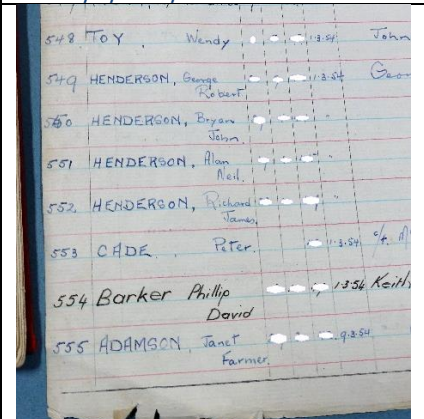 548 TOY, Wendy 1·3·54 John
549 HENDERSON, George 1·3·54 Geor
Robert
550 HENDERSON, Bryan "
John.
551 HENDERSON, Alan "
Neil.
552. HENDERSON, Richard "
James.
553 CADE, Peter. 1·3·54 c/o M
554 Barker Phillip 1·3·54 Keith
David
555 ADAMSON, Janet 9·3·54
Farmer.